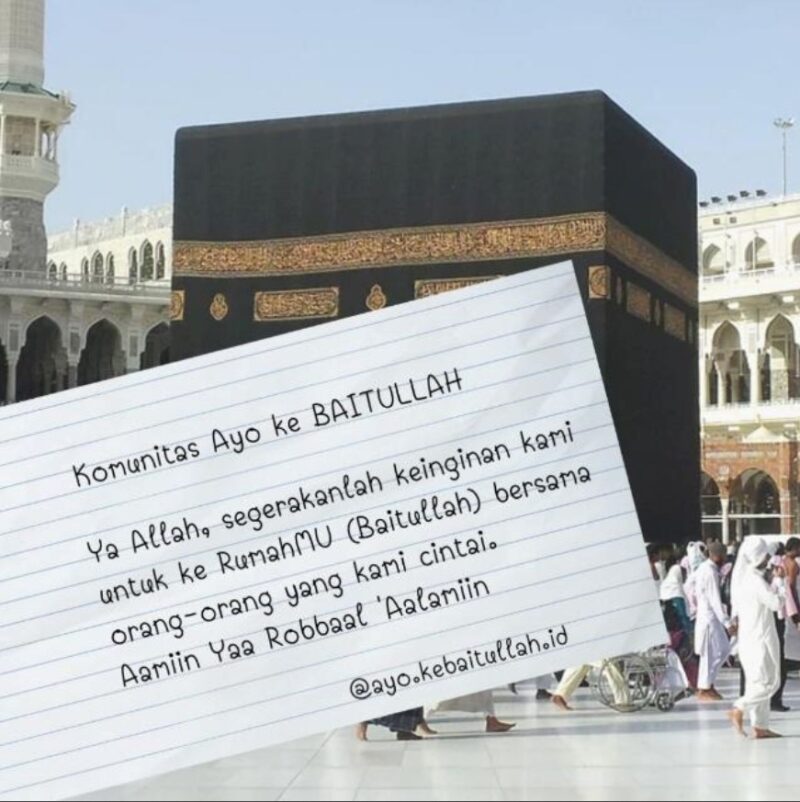 Komunitas Ayo ke BAITULLAH
Ya Allah, segerakanlah keinginan kami
untuk ke RumahMU (Baitullah) bersama
orang-orang yang kami cintai.
Aamiin Yaa Robbaal 'Aalamiin
@ayo.kebaitullah.id